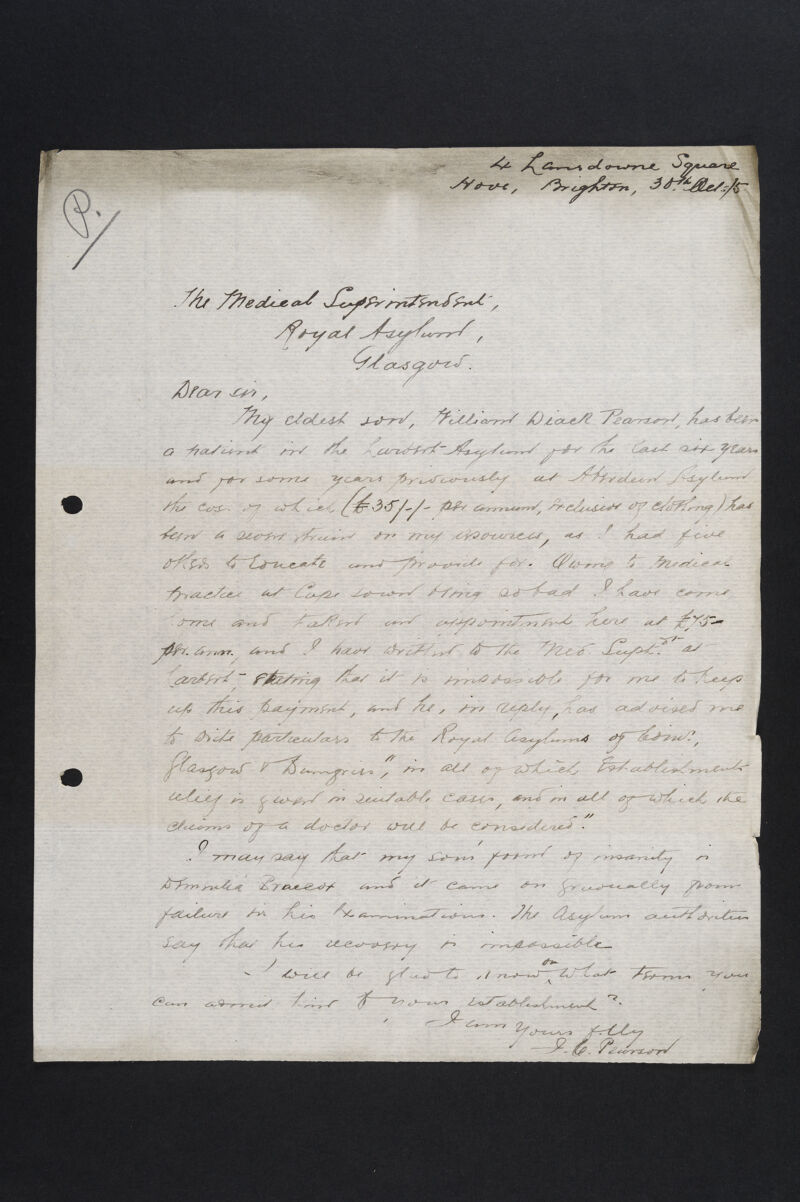 P.
4 Lansdowne Square
Hove, Brighton, 30th Oct. /5
The Medical Superintendent,
Royal Asylum,
Glasgow.
Dear Sir,
My eldest son, William Diack Pearson, has been
a patient in the Larbert Asylum for the last six years
and for some years previously at Aberdeen Asylum
the cost of which (£35/-/- per annum, exclusive of clothing) has
been a severe strain on my resources, as I had five
others to educate and provide for. Owing to Medical
practice at Cape Town being so bad I have come
home and taken an appointment here at £75-
per. ann., and I have written to the Med. Supt. at
Larbert, stating that it is impossible for me to keep
up this payment, and he, in reply, has advised me
to write particulars to the Royal Asylums of Edinr.,
Glasgow & Dumfries, "in all of which Establishments
relief is given in suitable cases, and in all of which the
claims of a doctor will be considered."
I may say that my son's form of insanity is
Dementia Praecox and it came on gradually from
failure in his Examinations. The Asylum authorities
say that his recovery is impossible
I will be glad to know on what terms you
can admit him to your establishment?
I am
Yours f.lly
J. C. Pearson